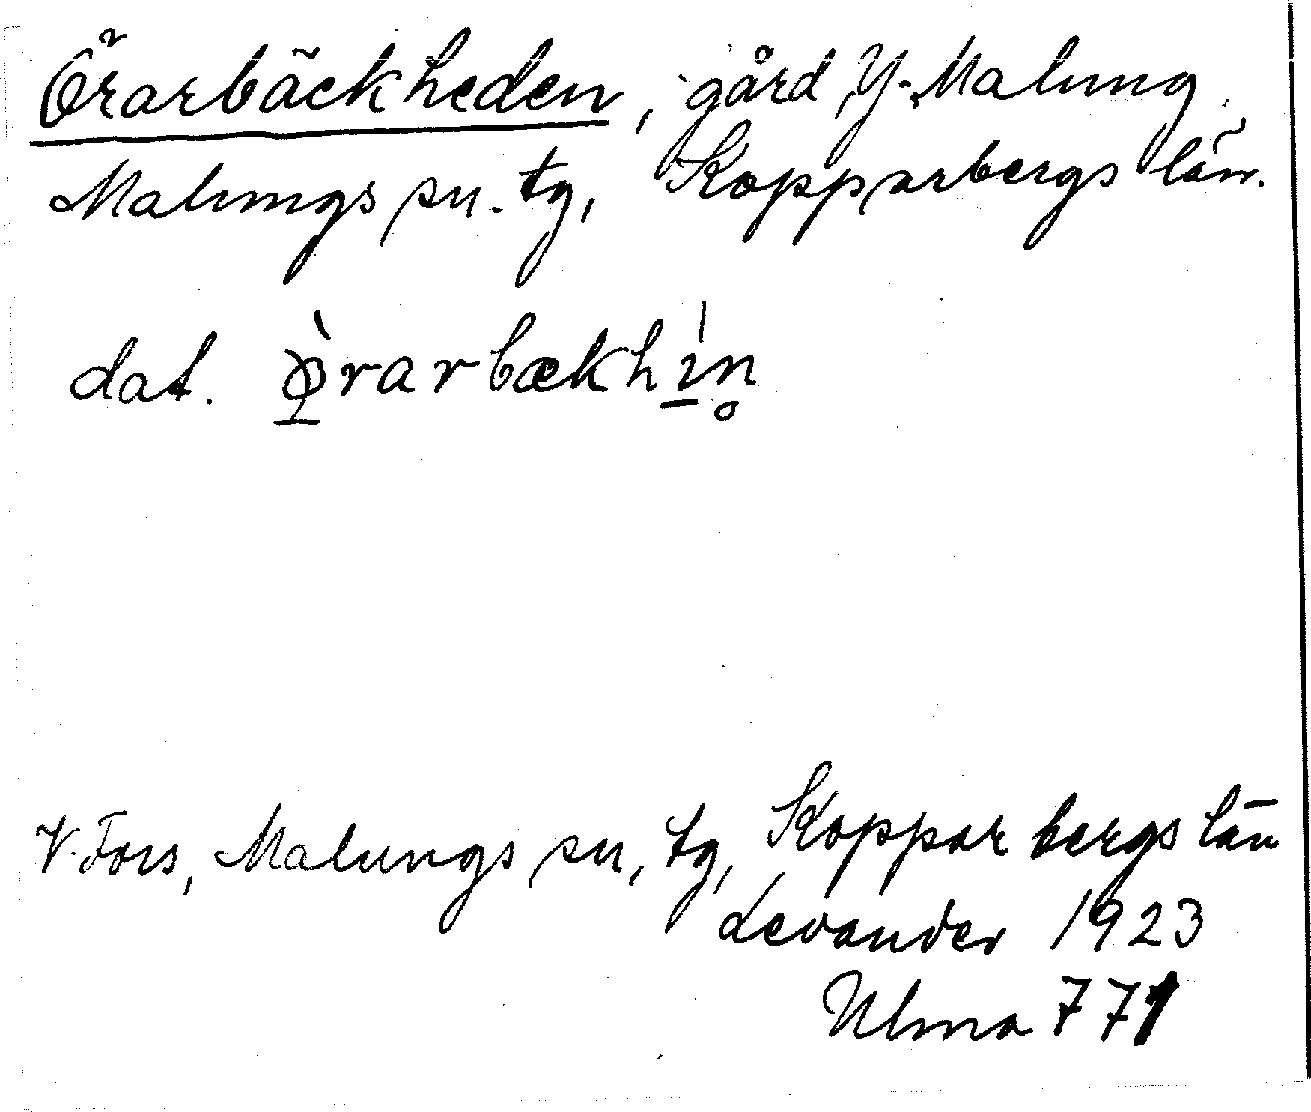 Örarbäckheden, gård, Y. Malung
Malungs sn. tg, Kopparbergs län.
dat. ø̀rarbækhı̍n̥
V. Fors, Malungs sn, tg, Kopparbergs län
Levander 1923
Ulma 771